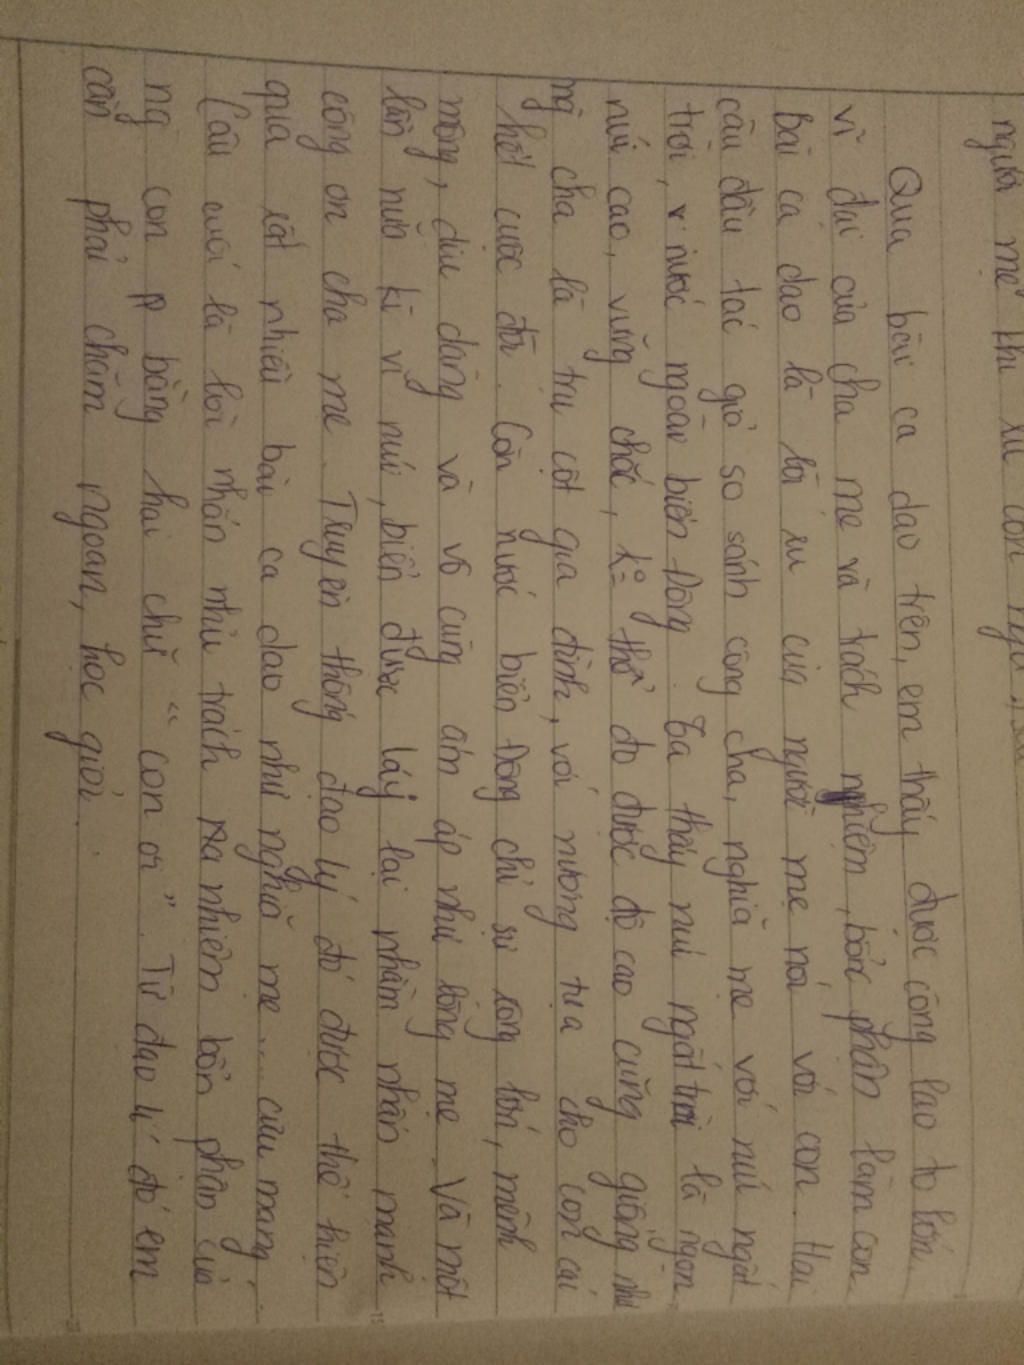 người mẹ khi xu con ngủ
Qua bài ca dao trên, em thấy được công lao to lớn,
vĩ đại của cha mẹ và trách nghiệm, bổn phận làm con
Bài ca dao là lời ru của người mẹ nói với con. Hai
câu đầu tác giả so sánh công cha, nghĩa mẹ với núi ngất
trời, nước ngoài biển Đông. Ta thấy núi ngất trời là ngọn
núi cao, vững chắc, k° thể đo được độ cao cũng giống như
ng cha là trụ cột gia đình, với nương tựa cho con cái
hết cuộc đời. Còn nước biển Đông chỉ sự rộng lớn, mênh
mông, dịu dàng và vô cùng ấm áp như lòng mẹ. Và một
lần nữa kì vĩ núi, biển được láy lại nhằm nhấn mạnh
công ơn cha mẹ. Truyền thống đạo lý đó được thể hiện
qua rất nhiều bài ca dao như nghĩa mẹ... cưu mang.
Câu cuối là lời nhắn nhủ trách nhiệm bổn phận của
ng con bằng hai chữ "con ơi". Từ đạo lí đó em
cần phải chăm ngoan, học giỏi.